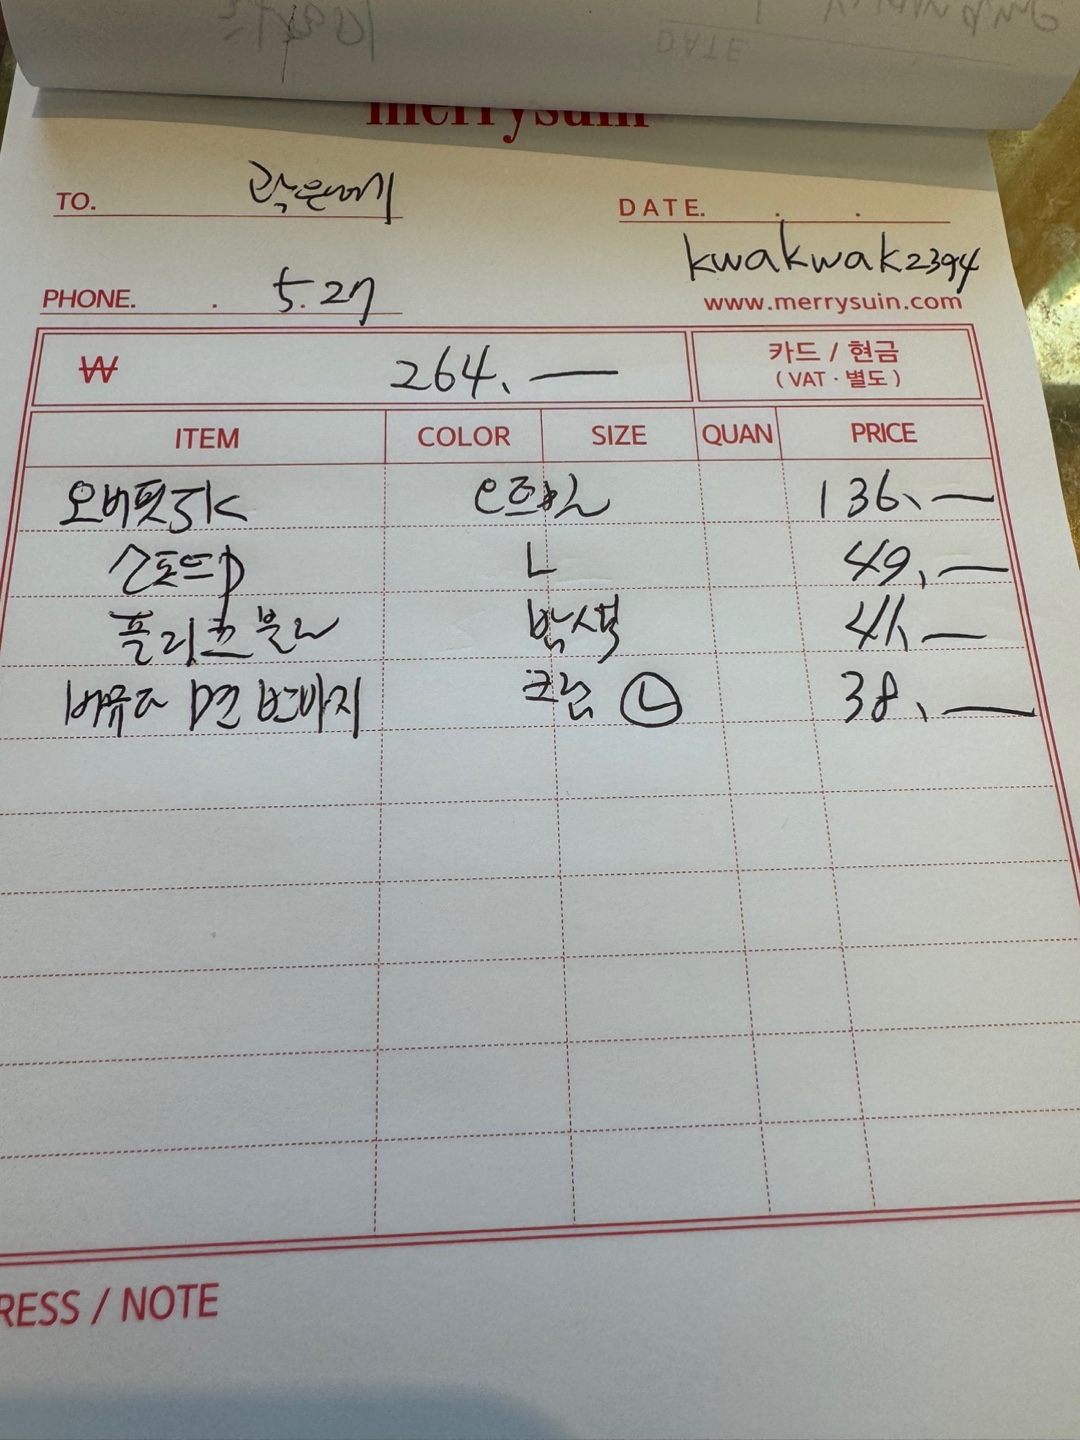 merrysuin
TO. 곽은예
DATE. . .
kwakwak2394
PHONE. . 5.27
www.merrysuin.com
₩ 264.—
카드 / 현금
(VAT · 별도)
ITEM COLOR SIZE QUAN PRICE
오버핏JK 136.—
L 49.—
플리츠블라 41.—
반바지 크림 Ⓛ 38.—
RESS / NOTE